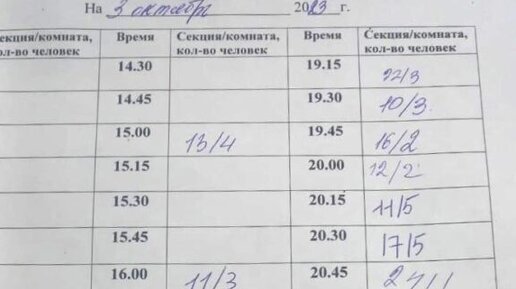 На 3 октября 2023 г.
екция/комната, Время Секция/комната, Время Секция/комната,
ол-во человек кол-во человек кол-во человек
14.30 19.15 22/3
14.45 19.30 10/3
15.00 13/4 19.45 16/2
15.15 20.00 12/2
15.30 20.15 11/5
15.45 20.30 17/5
16.00 11/3 20.45